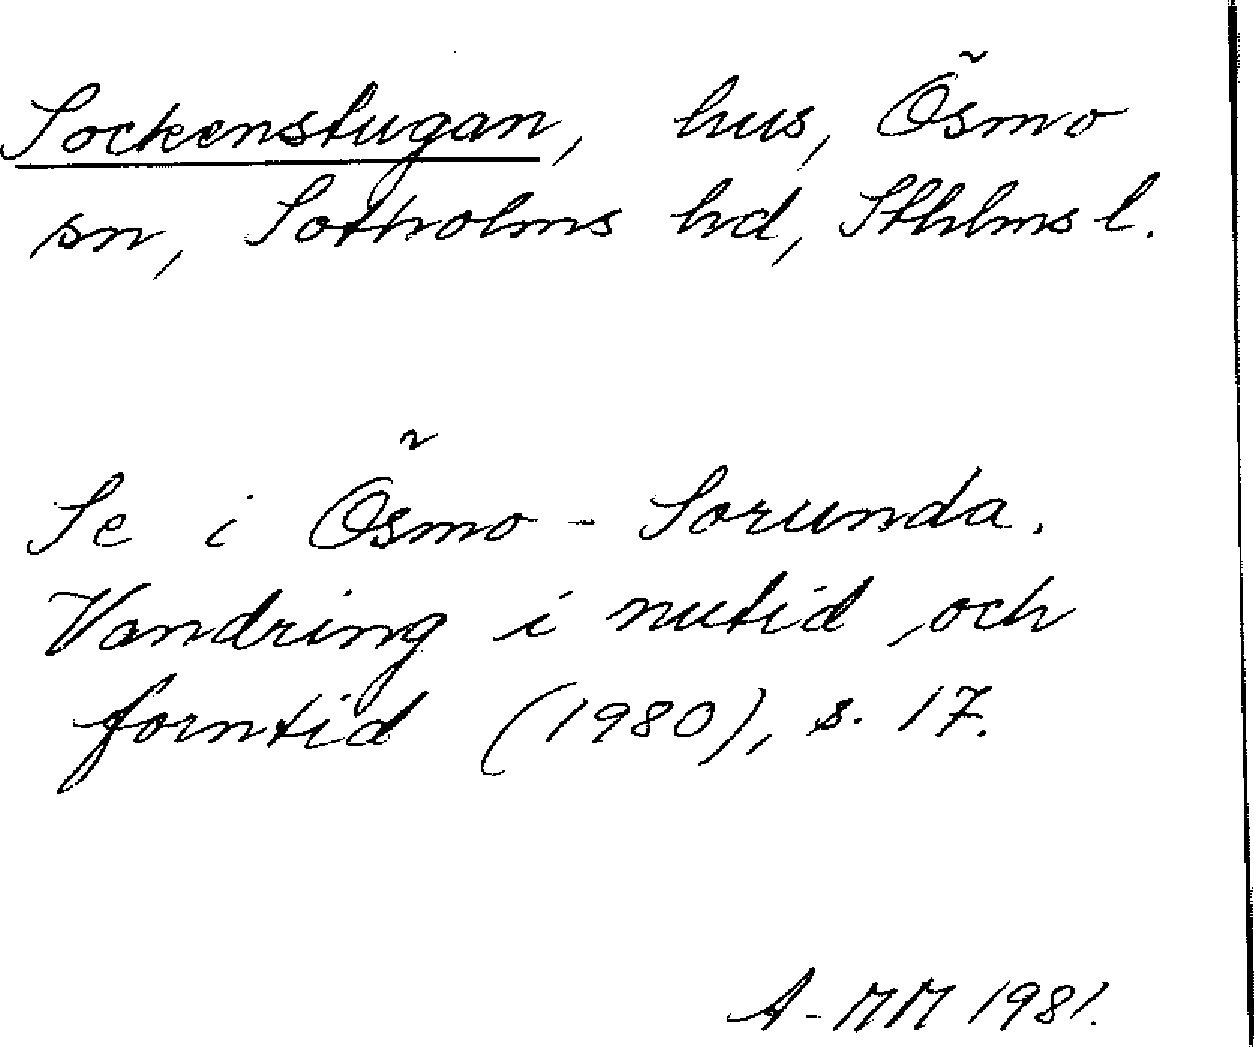 Sockenstugan, hus, Ösmo
sn, Sotholms hd, Sthlms l.
Se i Ösmo - Sorunda.
Vandring i nutid och
forntid (1980), s. 17.
A-MM 1981.